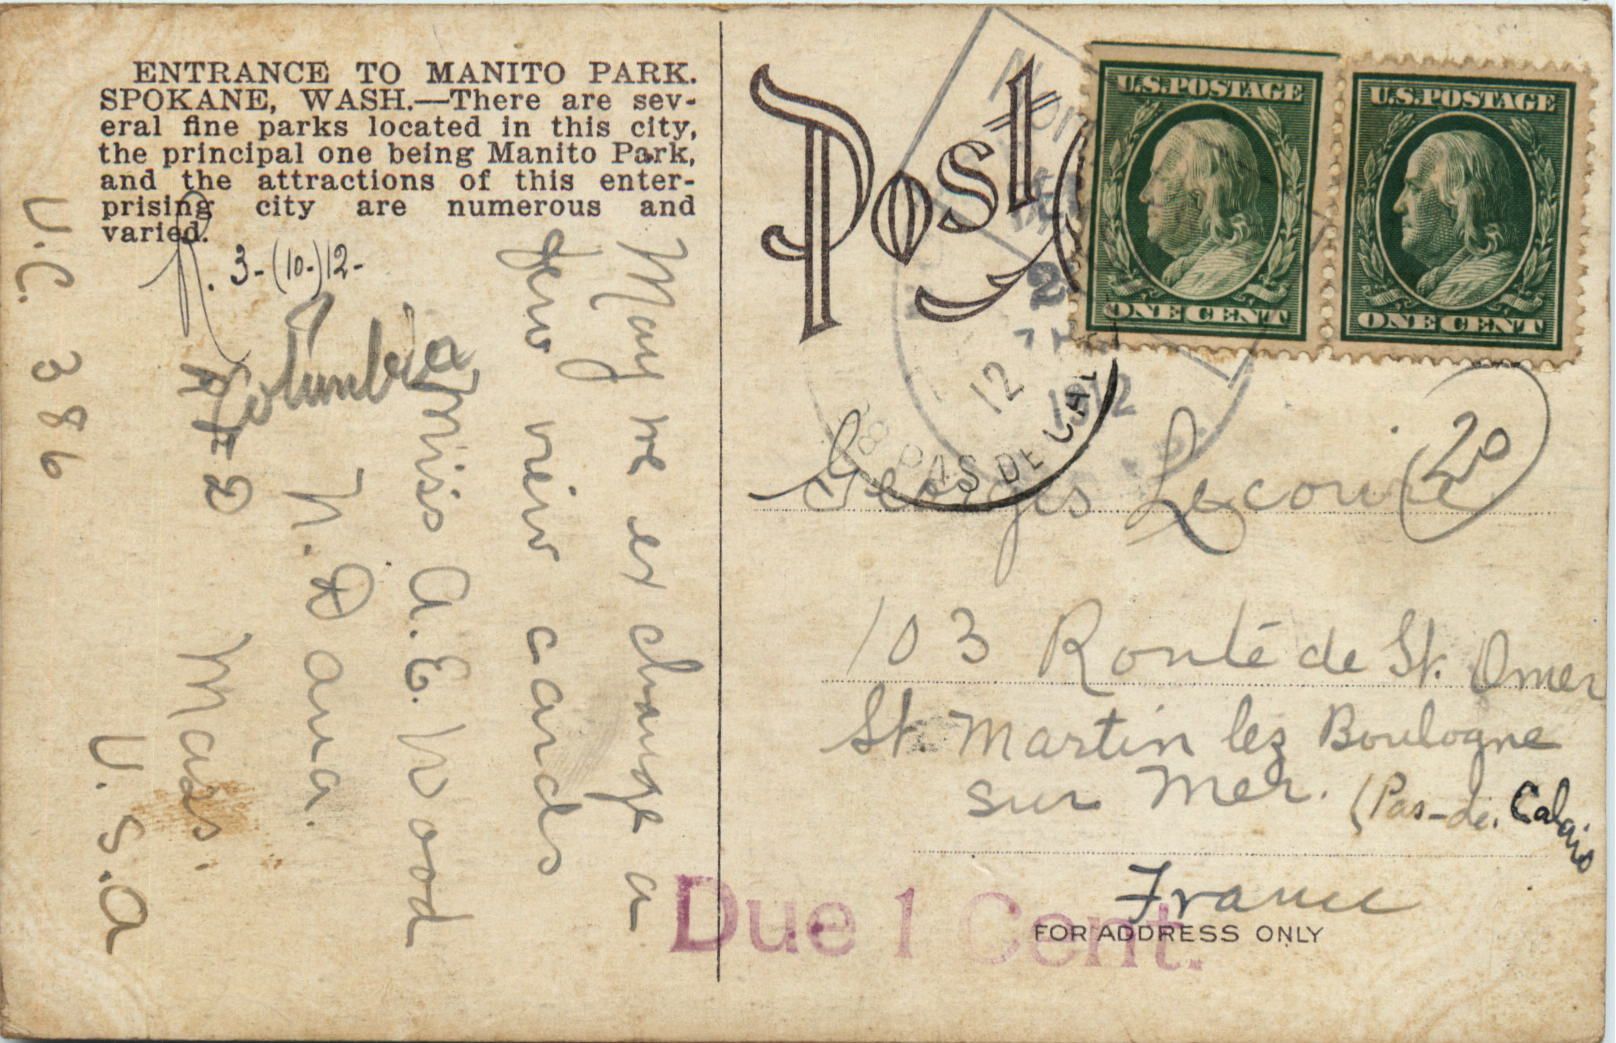 ENTRANCE TO MANITO PARK.
SPOKANE, WASH.—There are sev-
eral fine parks located in this city,
the principal one being Manito Park,
and the attractions of this enter-
prising city are numerous and
varied.
R. 3-(10-)12-
Columbia
May we exchange a
few view cards
Miss A. E. Wood
N. Dana.
R F D Mass.
U. S. A
U.C. 386
Post
U.S.POSTAGE
ONE CENT
U.S.POSTAGE
ONE CENT
2
12
1912
PAS DE CAL
20
Georges Lecointe
103 Route de St. Omer
St. Martin lez Boulogne
sur Mer. (Pas-de. Calais
France
Due 1 Cent.
FOR ADDRESS ONLY